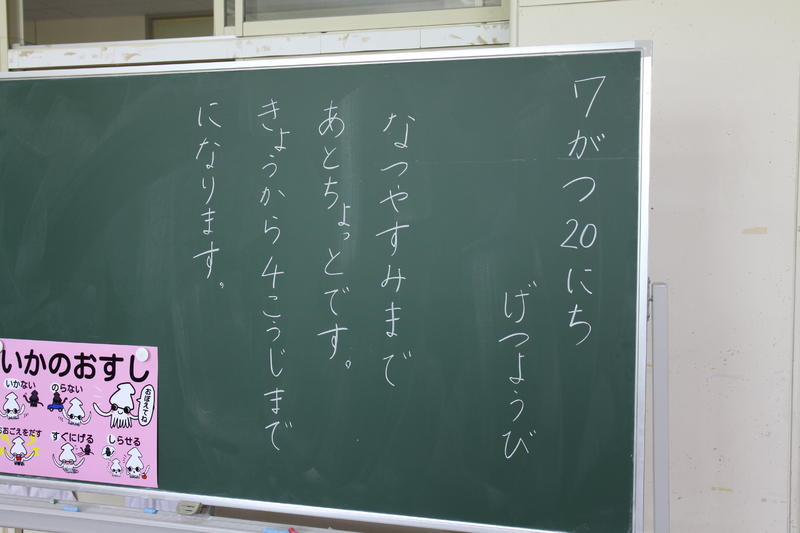 7がつ20にち
げつようび
なつやすみまで
あとちょっとです。
きょうから4こうじまで
になります。
いかのおすし
いかない
のらない
おぼえてね
おおごえをだす
すぐにげる
しらせる